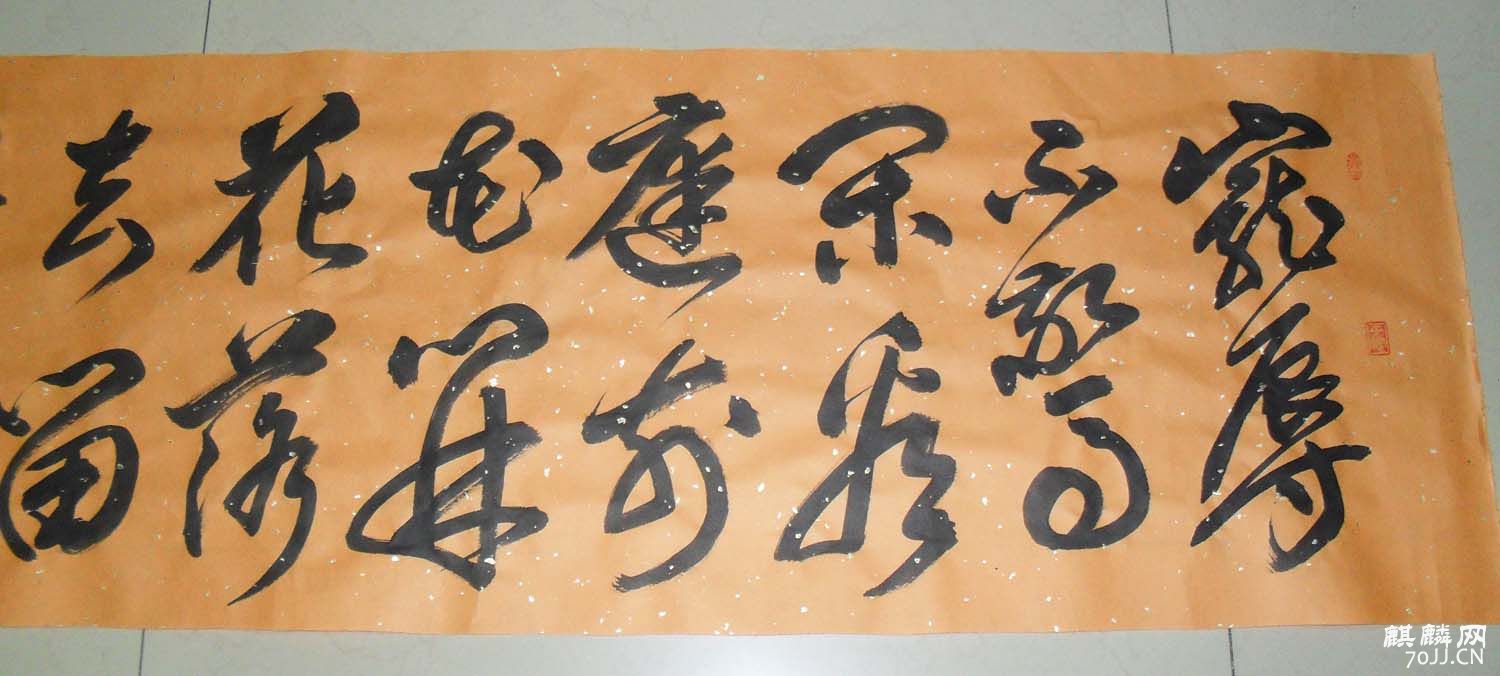 寵辱
不驚
閑看
庭前
花開
花落
去留
麒麟网
70JJ.CN